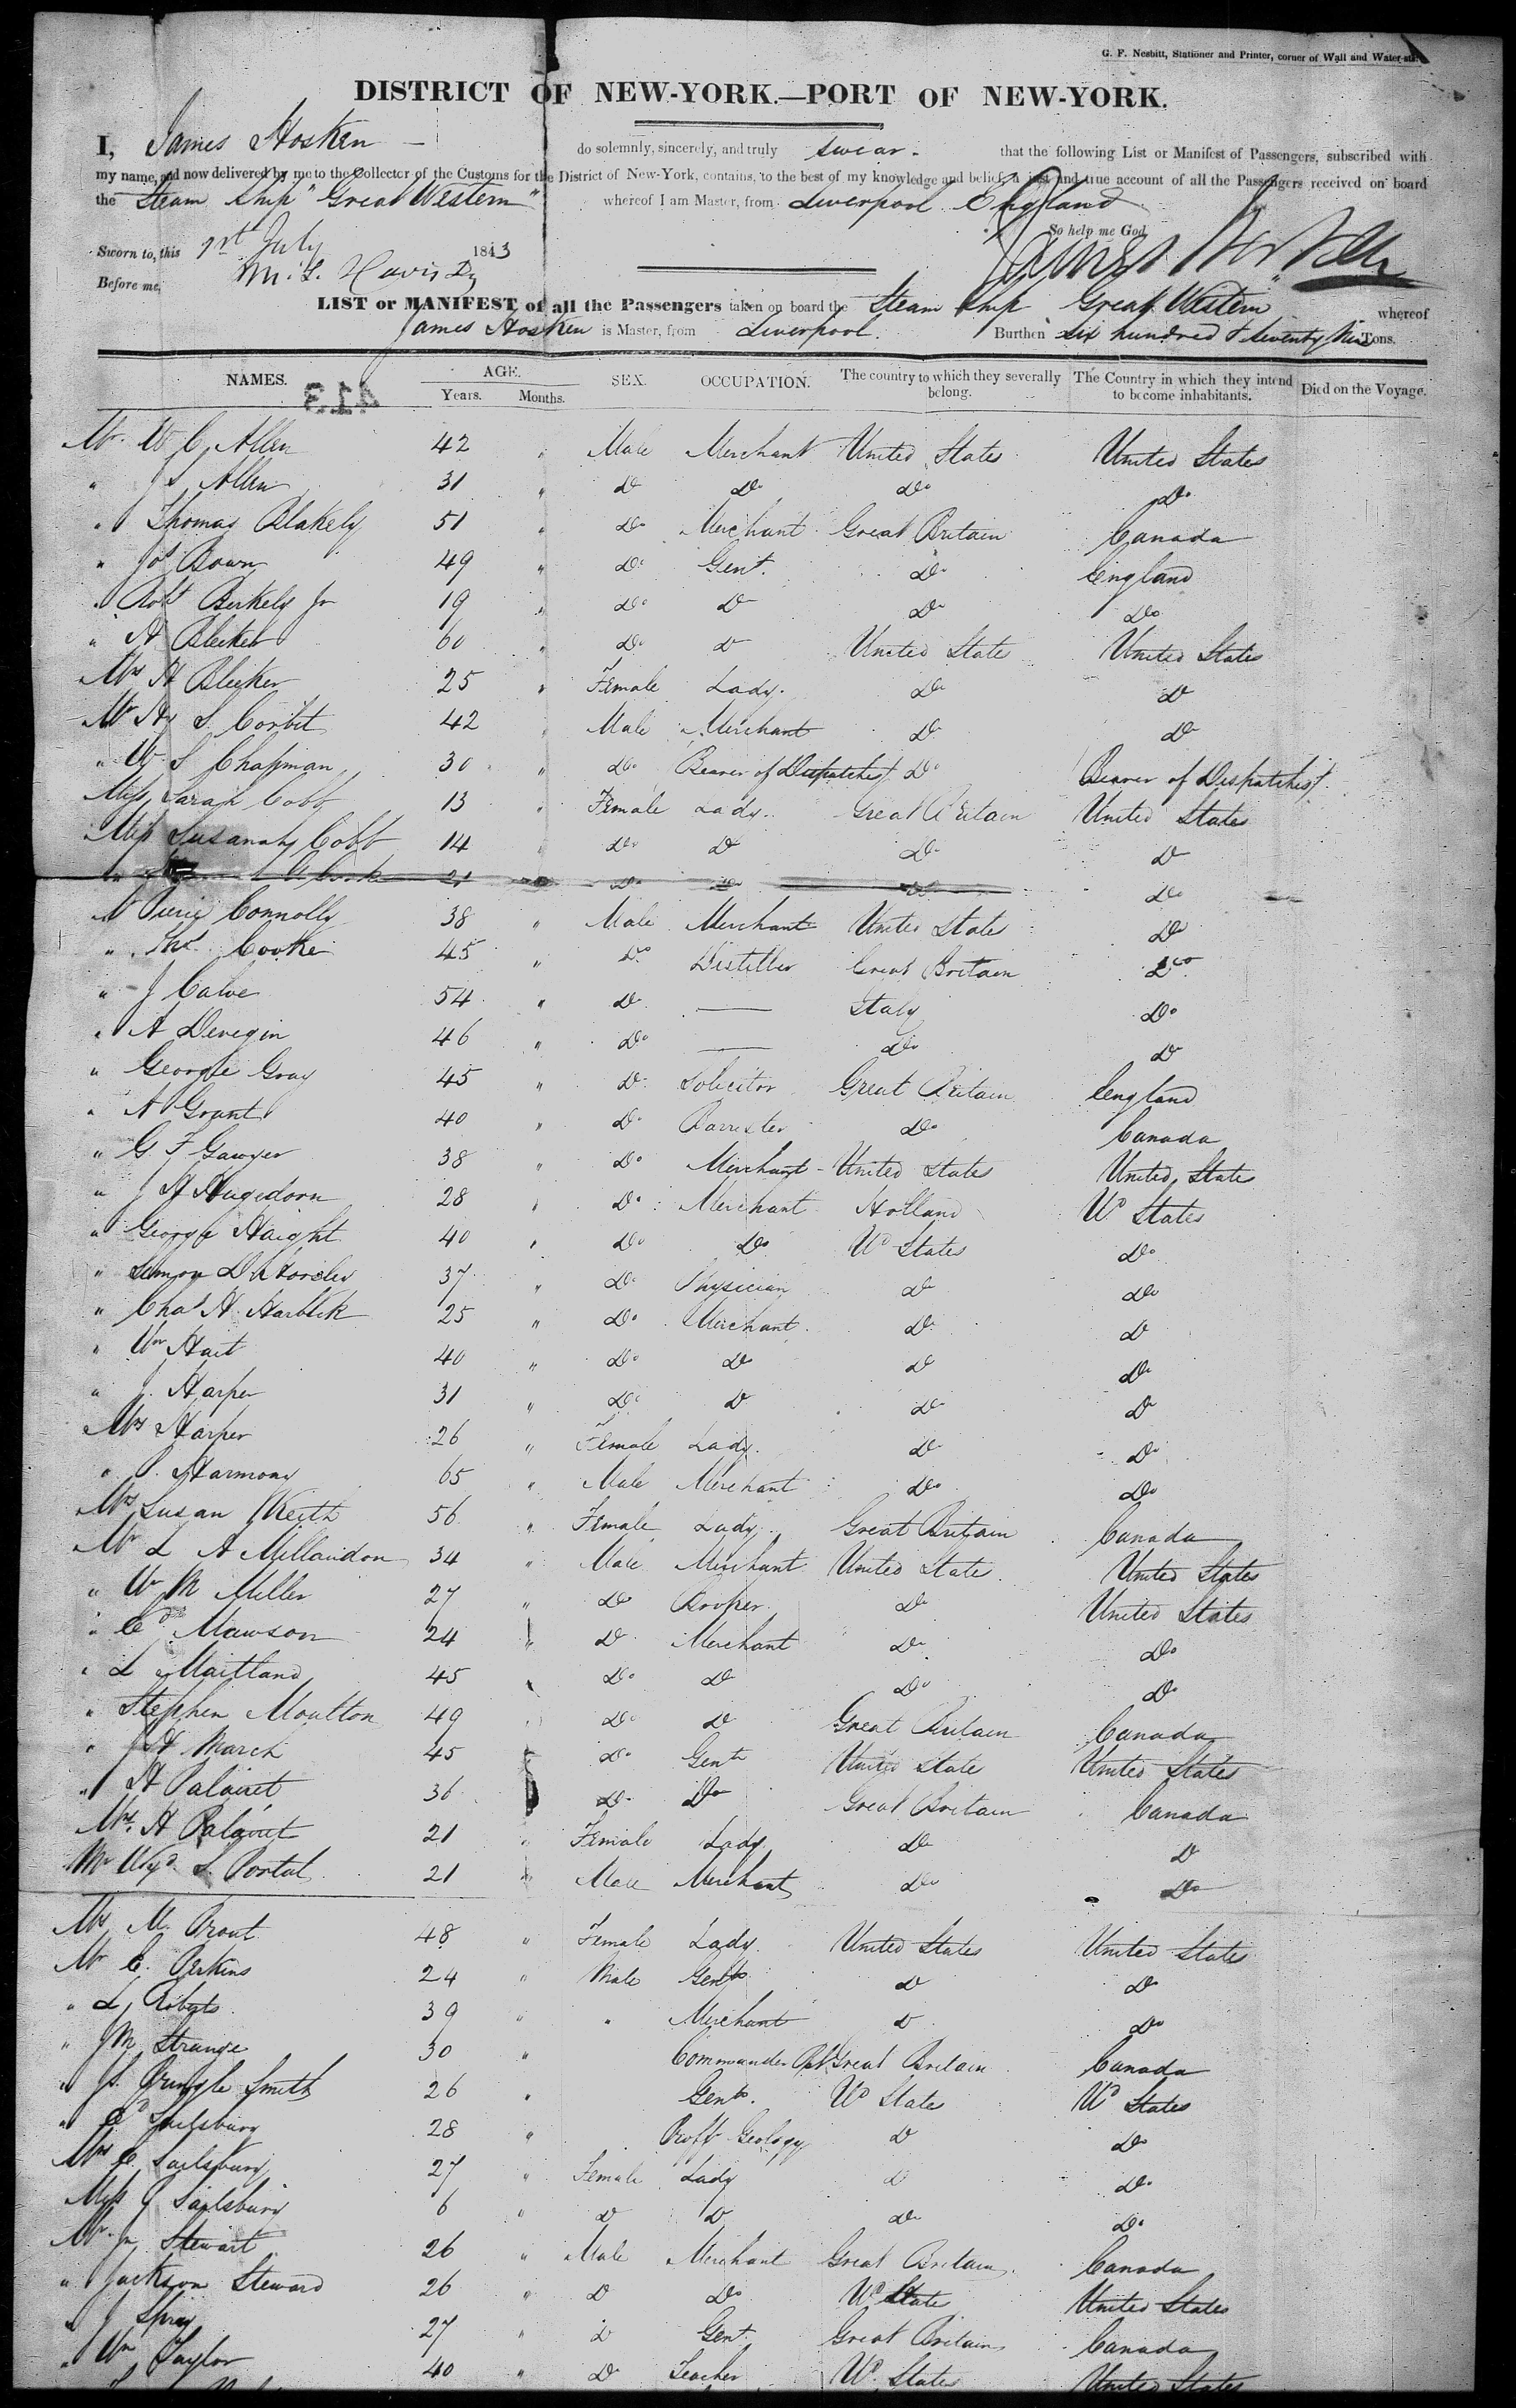 G. F. Nesbitt, Stationer and Printer, corner of Wall and Water-sts.
DISTRICT OF NEW-YORK.—PORT OF NEW-YORK.
I, James Hosken do solemnly, sincerely, and truly swear. that the following List or Manifest of Passengers, subscribed with
my name, and now delivered by me to the Collector of the Customs for the District of New-York, contains, to the best of my knowledge and belief, a just and true account of all the Passengers received on board
the Steam Ship "Great Western" whereof I am Master, from Liverpool England
So help me God,
Sworn to, this 1st July 1843 James Hosken
Before me,
LIST or MANIFEST of all the Passengers taken on board the Steam Ship Great Western whereof
James Hosken is Master, from Liverpool. Burthen six hundred & seventy nine Tons.
NAMES. AGE. Years. Months. SEX. OCCUPATION. The country to which they severally belong. The Country in which they intend to become inhabitants. Died on the Voyage.
413
Mr W C Allen 42 " Male Merchant United States United States
" J S Allen 31 " Do Do Do Do
" Thomas Blakely 51 " Do Merchant Great Britain Canada
" Jos Bown 49 " Do Gent. Do England
" Robt Berkely Jr 19 " Do Do Do Do
" H Blecker 60 " Do Do United State United States
Mrs H Blecker 25 " Female Lady. Do Do
Mr Hy S. Corbit 42 " Male Merchant Do Do
" W S Chapman 30 " Do Bearer of Dispatches Do Bearer of Dispatches
Miss Sarah Cobb 13 " Female Lady. Great Britain United States
Miss Susanah Cobb 14 " Do Do Do Do
21 Do Do Do Do
Mr Pierce Connolly 38 " Male Merchant United State Do
" Thos. Cooke 45 " Do Distiller Great Britain Do
" J Calve 54 " Do — Italy Do
" A Devegin 46 " Do — Do Do
" George Gray 45 " Do Solicitor Great Britain England
" A Grant 40 " Do Barrister Do Canada
" G F Gawyer 38 " Do Merchant United States United States
" J H Hugedorn 28 " Do Merchant Holland Ud States
" George Haight 40 " Do Do Ud States Do
" 37 " Do Physician Do Do
" Chas H. Harbbek 25 " Do Merchant Do Do
" Wm Hait 40 " Do Do Do Do
" J. Harper 31 " Do Do Do Do
Mrs Harper 26 " Female Lady. Do Do
" P. Harmony 65 " Male Merchant Do Do
Mrs Susan Keith 56 " Female Lady Great Britain Canada
Mr L A Millaudon 34 " Male Merchant United State United States
" Wm M Miller 27 " Do Broker Do United States
" Ed Mawson 24 " Do Merchant Do Do
" L Maitland 45 " Do Do Do Do
" Stephen Moulton 49 " Do Do Great Britain Canada
" J H March 45 " Do Gent United State United States
" H Palairet 36 " Do Do Great Britain Canada
Mrs. H Palairet 21 " Female Lady Do Do
Mr Wynd. S. Portal 21 " Male Merchant Do Do
Mrs M. Prout 48 " Female Lady. United States United States
Mr C. Perkins 24 " Male Gent Do Do
" L Roberts 39 " " Merchant Do Do
" J M Strange 30 " Commander Great Britain Canada
" J. Pringle Smith 26 " Gent. Ud State Ud States
" Ed Sailsbury 28 " Proff Geology Do Do
Mrs E. Sailsbury 27 " Female Lady Do Do
Miss J Sailsbury 6 " Do Do Do Do
Mr Jn Stewart 26 " Male Merchant Great Britain Canada
" Jackson Steward 26 " Do Do Ud State United States
" J Spray 27 " Do Gent. Great Britain Canada
" Wm Taylor 40 " Do Teacher Ud States United States